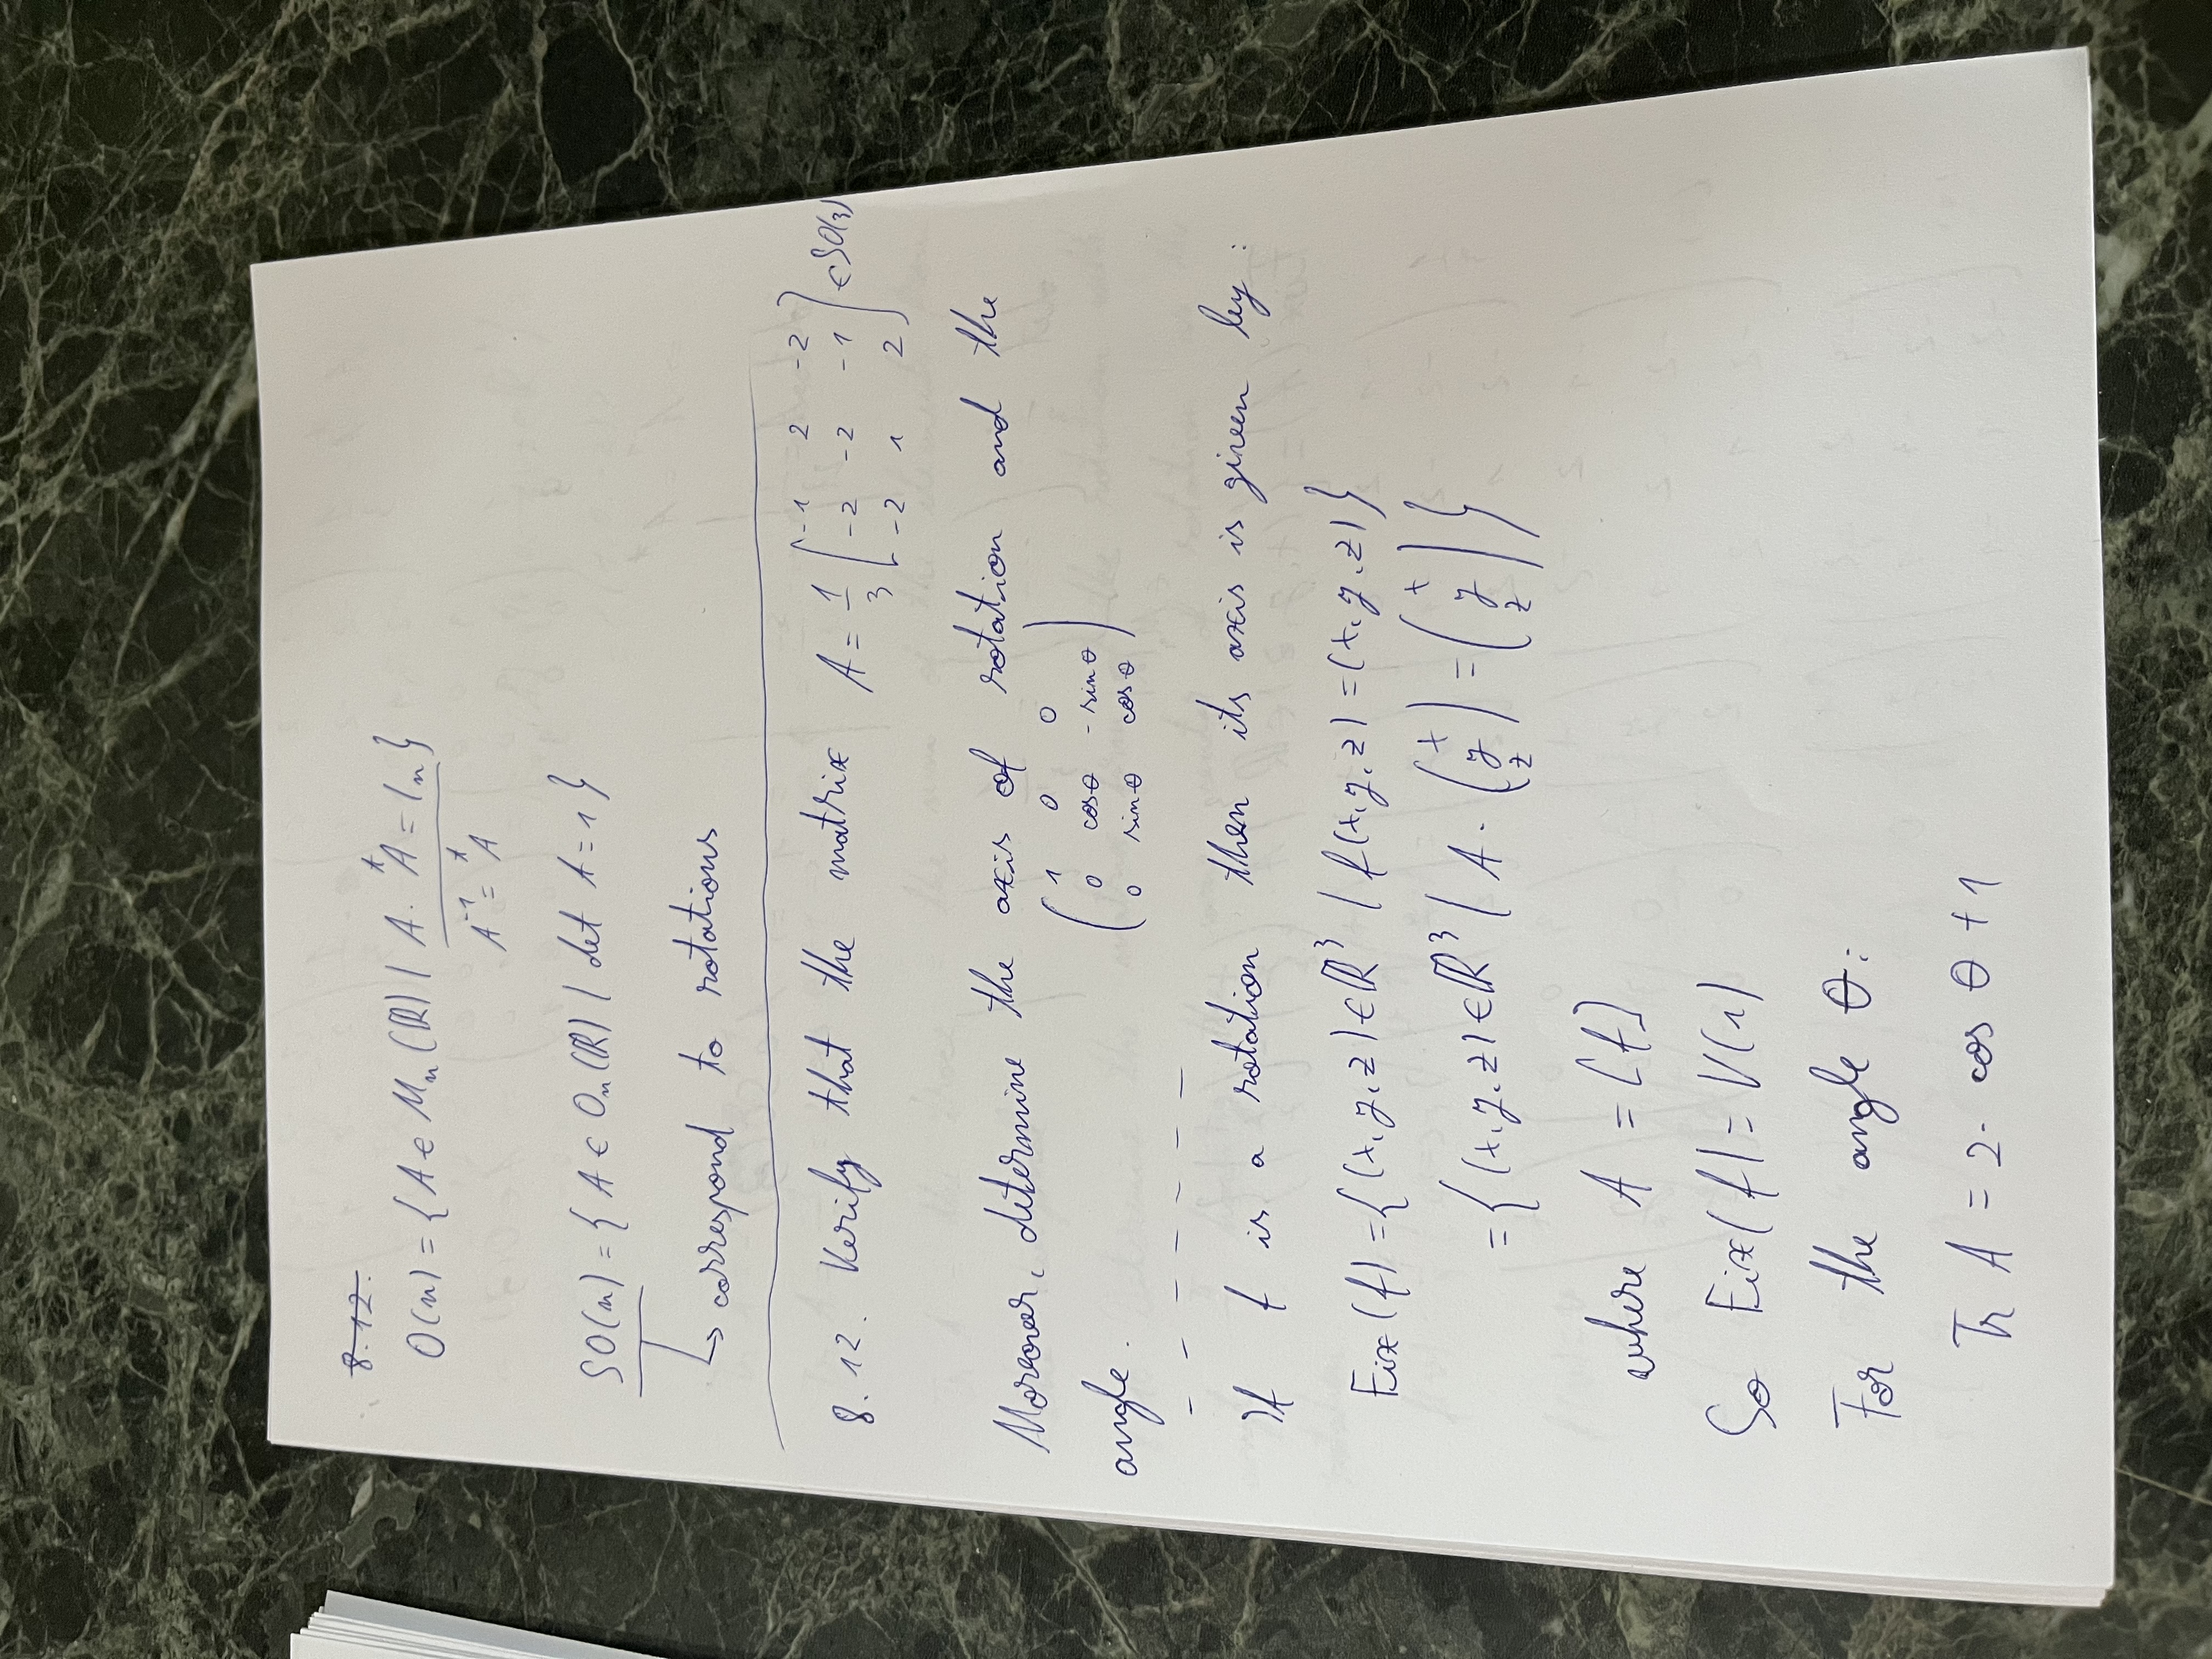 8.12.
O(n) = {A ∈ Mₙ(ℝ) | A · ᵗA = Iₙ}
A⁻¹ = ᵗA
SO(n) = { A ∈ Oₙ(ℝ) | det A = 1 }
↳ correspond to rotations
8.12. Verify that the matrix A = 1/3 [-1 2 -2; -2 -2 -1; -2 1 2] ∈ SO(3)
Moreover, determine the axis of rotation and the
angle. (1 0 0; 0 cosθ -sinθ; 0 sinθ cosθ)
If f is a rotation then its axis is given by :
Fix(f) = {(x,y,z) ∈ ℝ³ | f(x,y,z) = (x,y,z)}
= {(x,y,z) ∈ ℝ³ | A · (x; y; z) = (x; y; z)}
where A = [f]
So Fix(f) = V(1)
For the angle θ:
Tr A = 2 · cos θ + 1